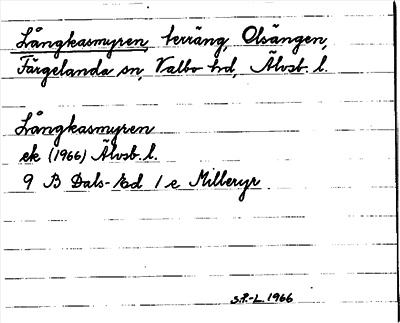 Långkasmyren, terräng, Olsängen,
Färgelanda sn, Valbo hd, Älvsb. l.
Långkasmyren
ek (1966) Älvsb. l.
9 B Dals-Ed 1 e Milleryr
S.F.-L. 1966